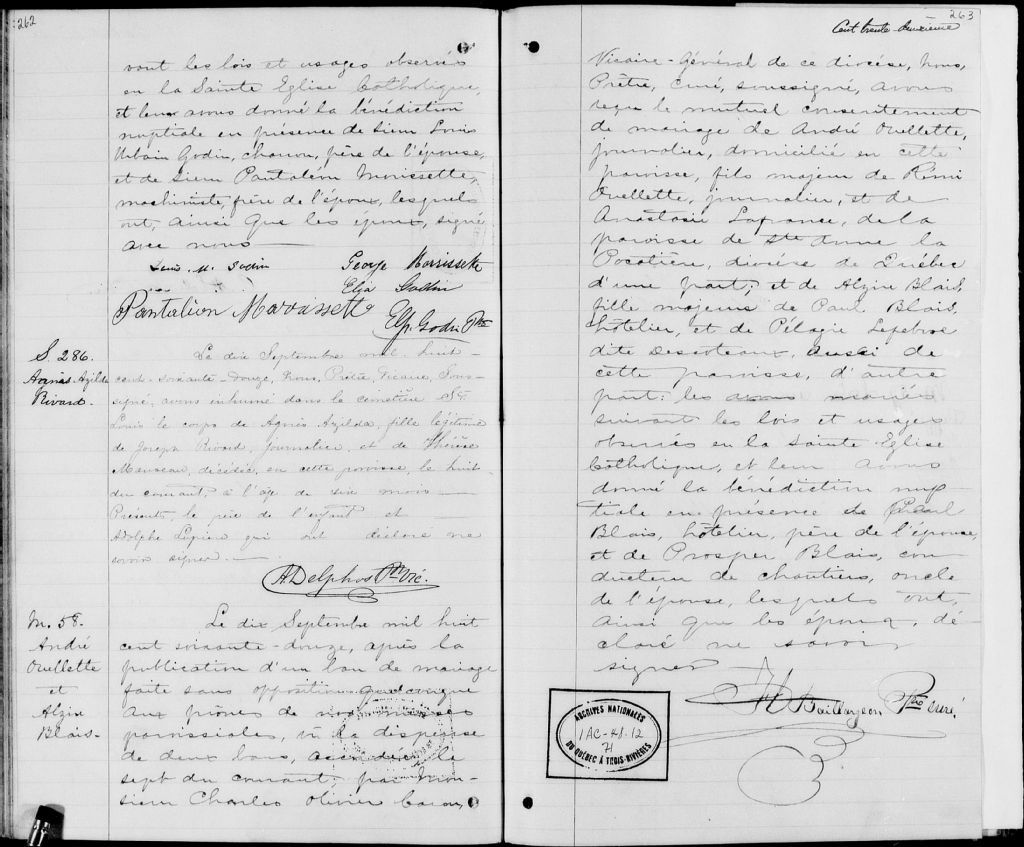 262
vant les lois et usages observés
en la Sainte Eglise Catholique,
et leur avons donné la bénédiction
nuptiale en présence de Sieur Louis
Urbain Godin, charron, père de l'épouse,
et de Sieur Pantaléon Morissette,
machiniste, frère de l'époux, lesquels
ont, ainsi que les époux, signé
avec nous
Louis U. Godin George Morrissette
Elia Godin
Pantaléon Morassett
Elp. Godin Ptre
S 286.
Agnès-Azilda
Rivard.
Le dix Septembre mil huit-
cent-soixante-douze, Nous, Prêtre, Vicaire, Sous-
signé, avons inhumé dans le cimetière St
Louis le corps de Agnès Azilda, fille légitime
de Joseph Rivard, journalier, et de Thérèse
Manseau, décédée, en cette paroisse, le huit
du courant, à l'âge de six mois
Présents, le père de l'enfant et
Adolphe Lepine qui ont déclaré ne
savoir signer.
A Delphos Ptre Vic.
M. 58.
André
Ouellette
et
Alzire
Blais-
Le dix Septembre mil huit
cent soixante-douze, après la
publication d'un ban de mariage
faite sans opposition quelconque
aux prônes de nos messes
paroissiales, vu la dispense
de deux bans, accordée le
sept du courant, par Mon-
sieur Charles Olivier Caron,
263
Cent trente-deuxième
Vicaire-Général de ce diocèse, Nous,
Prêtre, Curé, soussigné, avons
reçu le mutuel consentement
de mariage de André Ouellette,
journalier, domicilié en cette
paroisse, fils majeur de Rémi
Ouellette, journalier, et de
Anastasie Lafrance, de la
paroisse de Ste Anne la
Pocatière, diocèse de Québec
d'une part; et de Alzire Blais,
fille majeure de Paul Blais,
hôtelier, et de Pélagie Lefebvre
dite Descoteaux, aussi de
cette paroisse, d'autre
part: les avons mariés
suivant les lois et usages
observés en la Sainte Eglise
Catholique, et leur avons
donné la bénédiction nup
tiale en présence de Paul
Blais, hôtelier, père de l'épouse,
et de Prosper Blais, con
ducteur de chantiers, oncle
de l'épouse, lesquels ont,
ainsi que les époux, dé-
claré ne savoir
signer
Baillargeon Ptre curé.
ARCHIVES NATIONALES
1AC-41-12
71
DU QUÉBEC À TROIS-RIVIÈRES